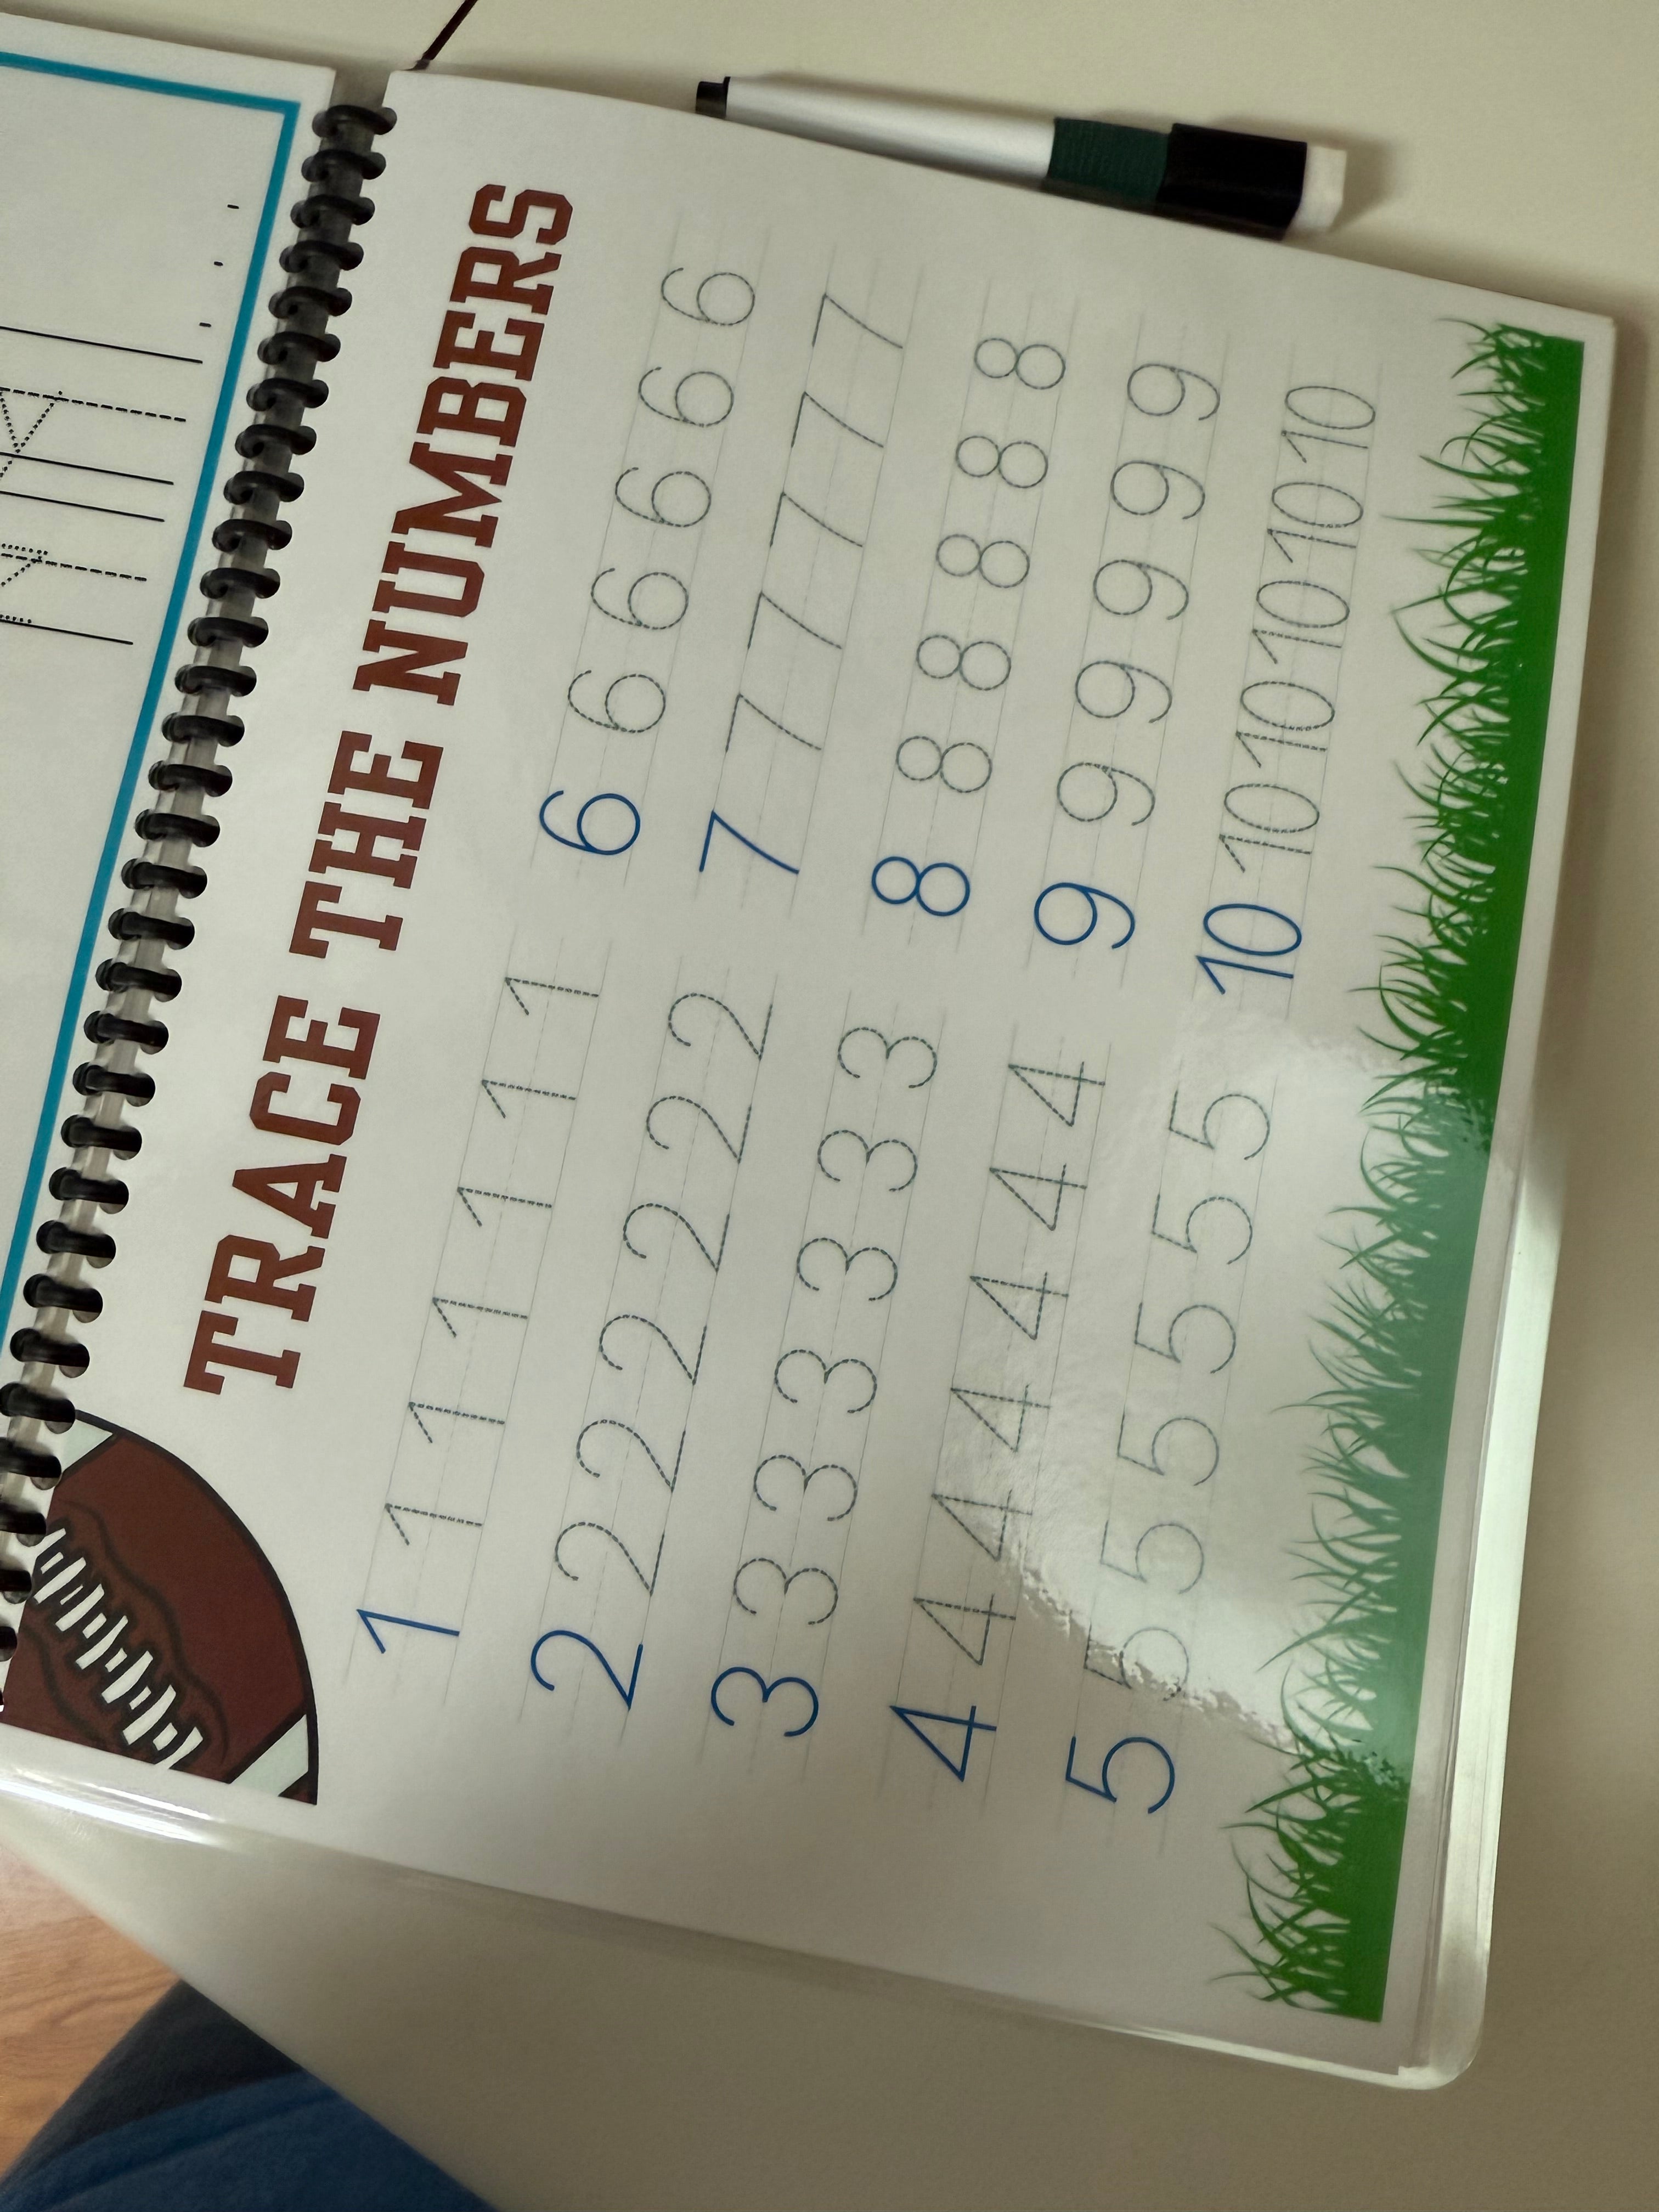 TRACE THE NUMBERS
1 1 1 1 1 1 1
2 2 2 2 2 2 2
3 3 3 3 3 3 3
4 4 4 4 4 4 4
5 5 5 5 5 5 5
6 6 6 6 6 6
7 7 7 7 7 7
8 8 8 8 8 8
9 9 9 9 9 9
10 10 10 10 10 10